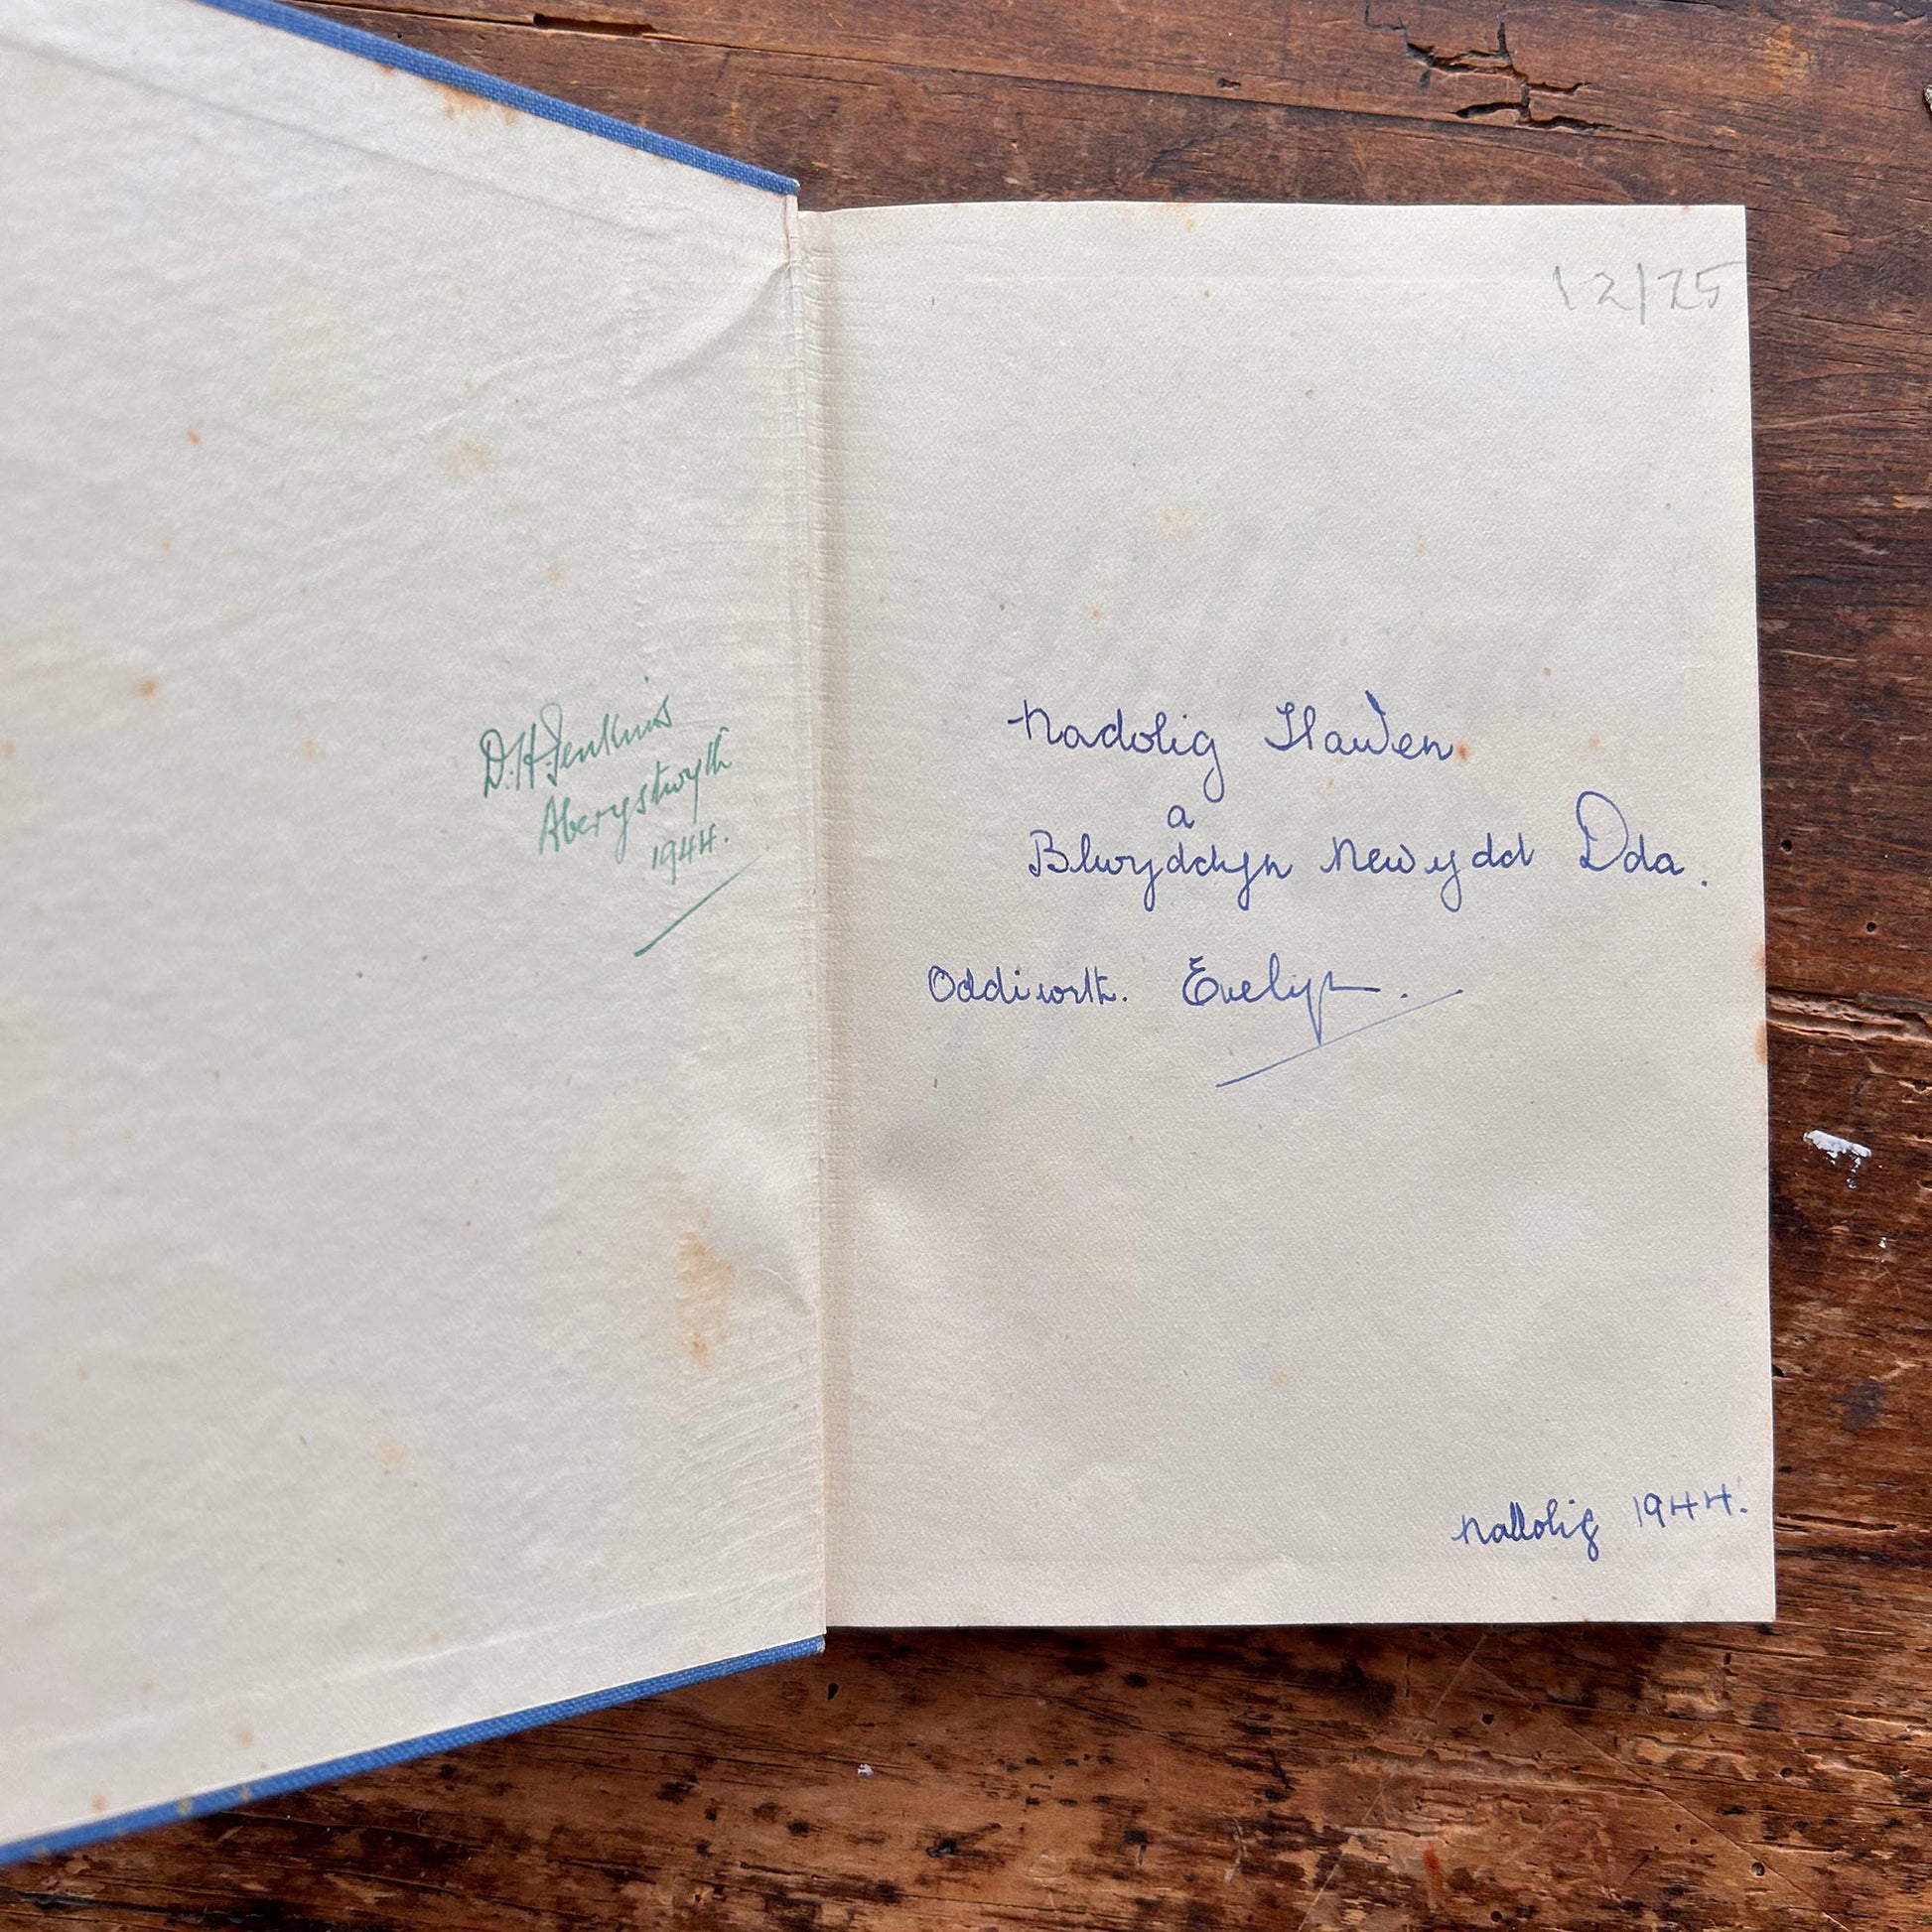 D.H. Jenkins
Aberystwyth
1944.
12/25
Nadolig Llawen
a
Blwyddyn Newydd Dda.
Oddiwrth. Evelyn.
Nadolig 1944.